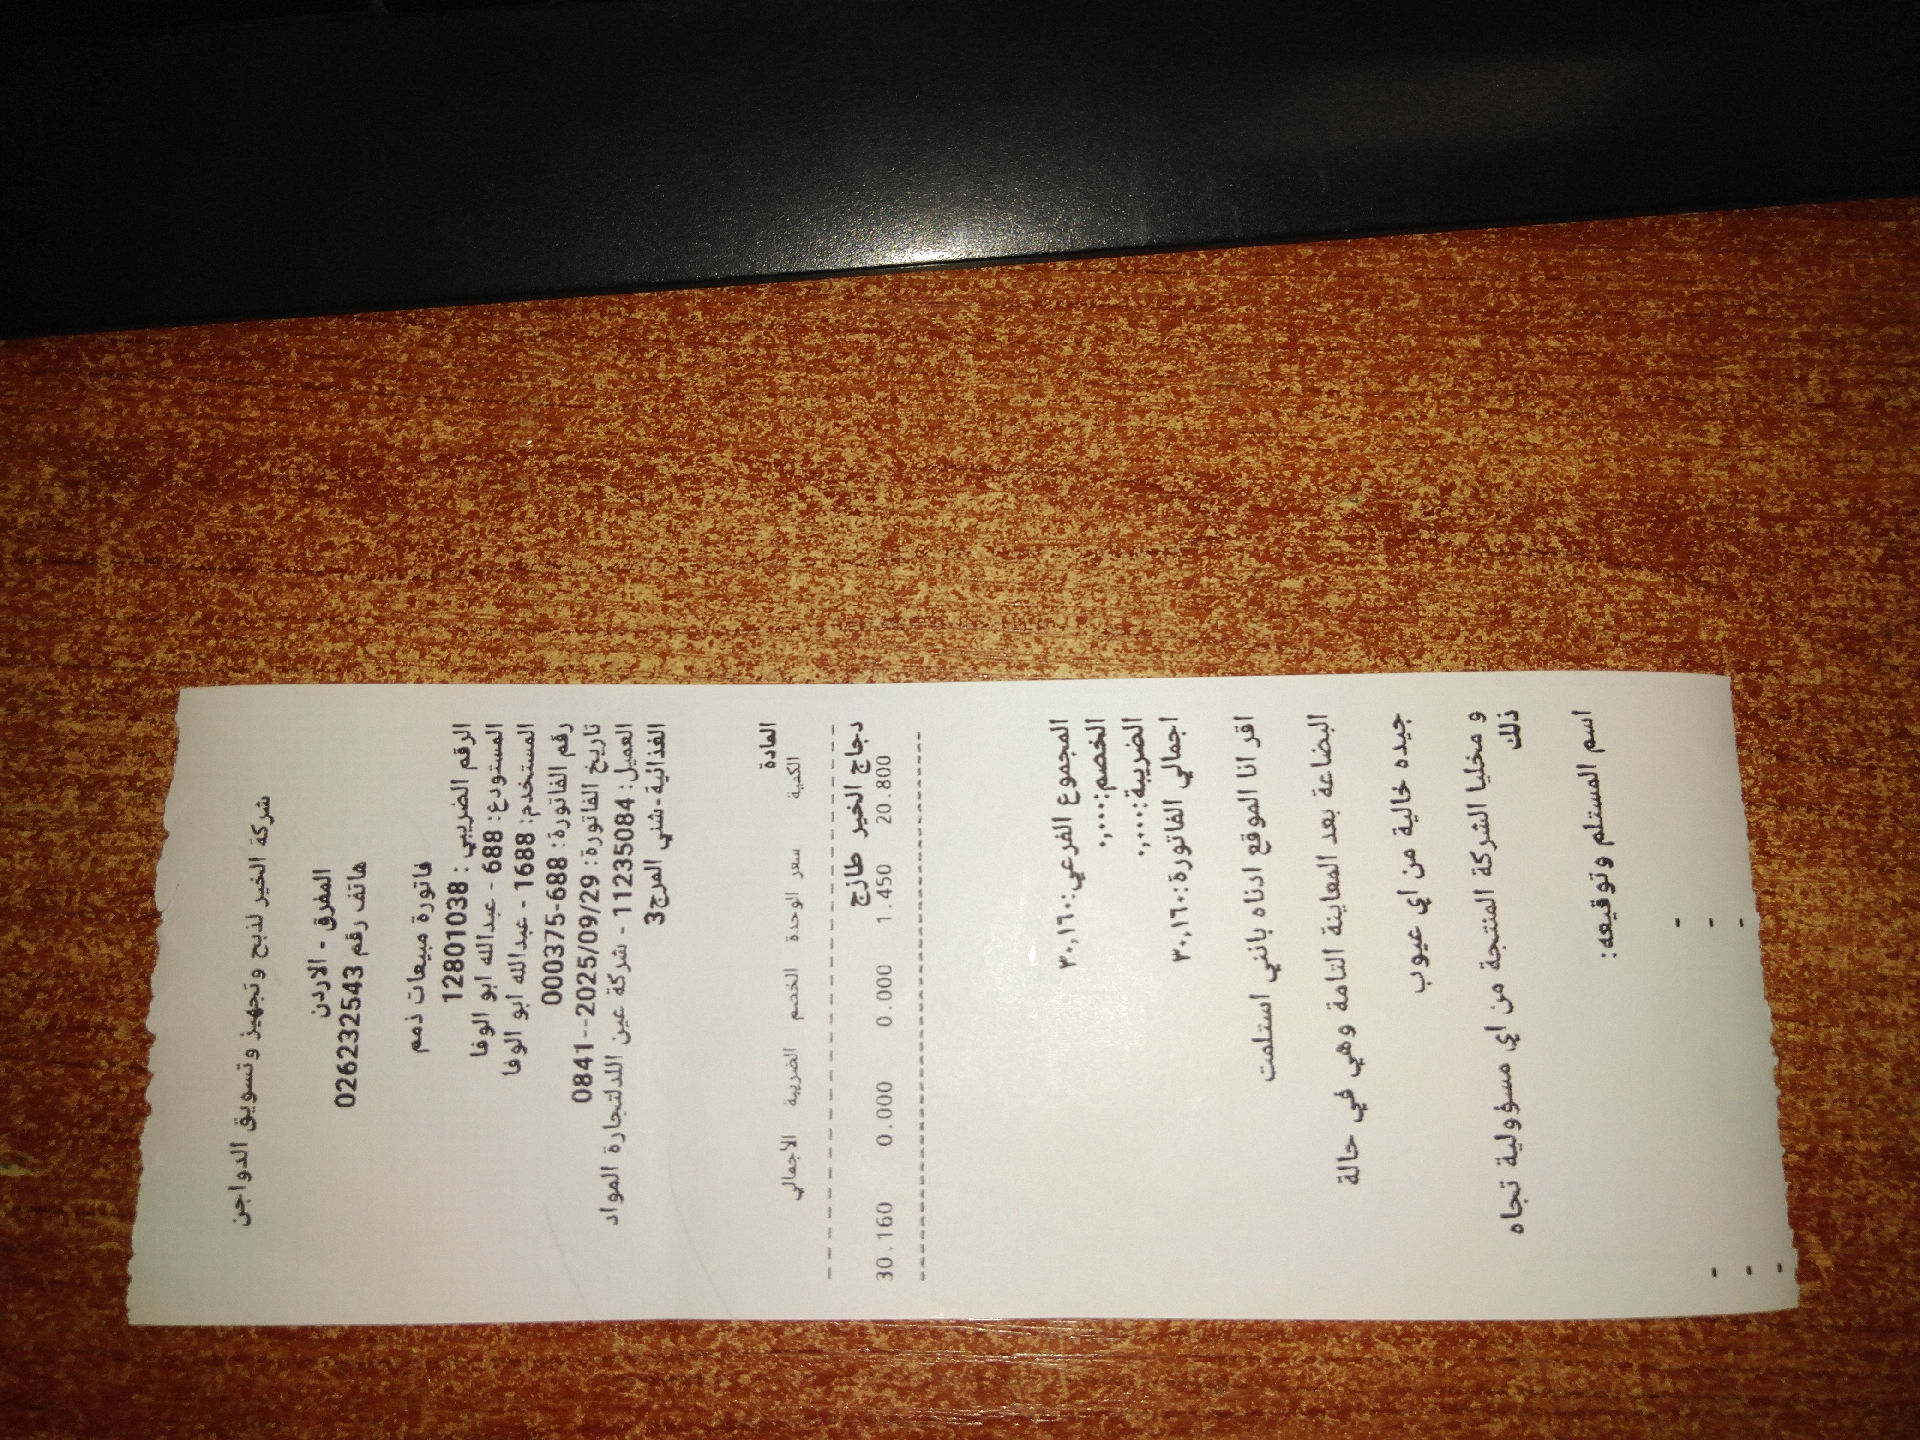 شركة الخير لذبح وتجهيز وتسويق الدواجن
المفرق - الاردن
هاتف رقم 026232543
فاتورة مبيعات ذمم
الرقم الضريبي : 12801038
المستودع: 688 - عبدالله ابو الوفا
المستخدم: 1688 - عبدالله ابو الوفا
رقم الفاتورة: 688-000375
تاريخ الفاتورة: 2025/09/29--0841
العميل: 11235084 - شركة عين اللدلتجارة المواد
الغذائية-شني المرج3
المادة
الكمية سعر الوحدة الخصم الضريبة الاجمالي
دجاج الخير طازج
20.800 1.450 0.000 0.000 30.160
المجموع الفرعي: ٣٠,١٦٠
الخصم: ٠,٠٠٠
الضريبة: ٠,٠٠٠
اجمالي الفاتورة: ٣٠,١٦٠
اقر انا الموقع ادناه بانني استلمت
البضاعة بعد المعاينة التامة وهي في حالة
جيده خالية من اي عيوب
و مخليا الشركة المنتجة من اي مسؤولية تجاه
ذلك
اسم المستلم وتوقيعه: